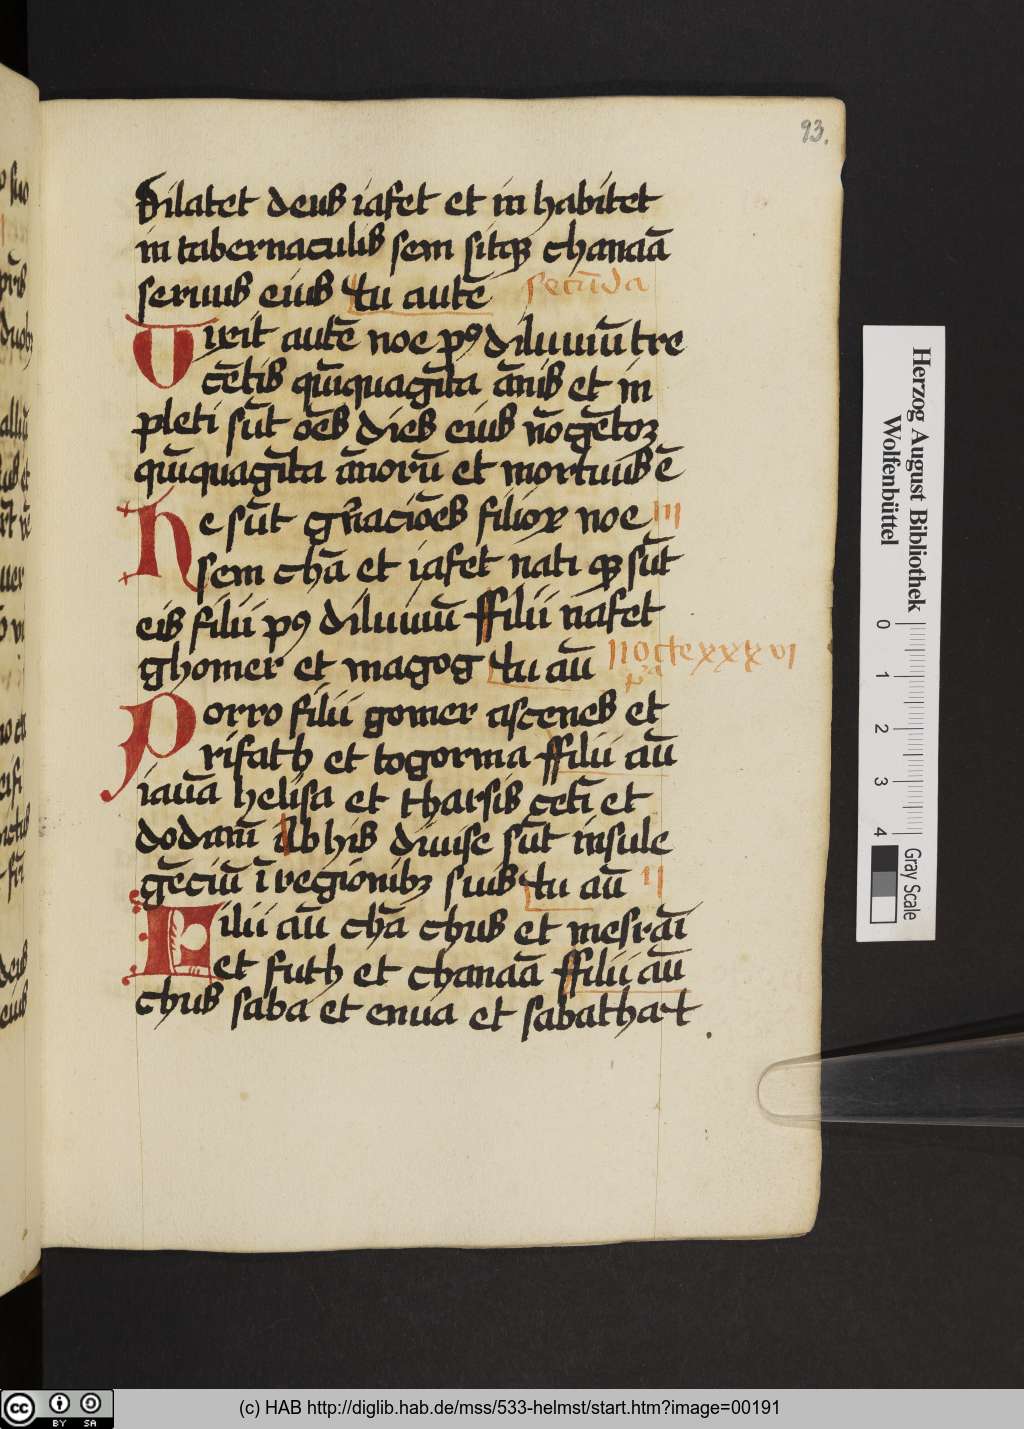 93.
dilatet deus iafet et in habitet
in tabernaculis sem sitqꝫ chanaā
seruus eius tu autē secūda
Uixit autē noe pꝰ diluuiū tre
cētis qūiquagīta ānis et in
pleti sūt oēs dies eius nōgētoꝝ
qūiquagīta ānorū et mortuus ē
He sūt gn̄acōnes filioꝝ noe iii
sem chā et iafet nati qꝫ sūt
eis filii pꝰ diluuiū ffilii iafet
ghomer et magog tu aū nocte xxxvi
Porro filii gomer ascenes et
rifath et togorma ffilii aū
iauā helisa et tharsis cetī et
dodanī ab his diuise sūt insule
gēciū ī regionibꝫ suis tu aū ii
Filii aū chā chus et mesraī
et futh et chanaā ffilii aū
chus saba et enuia et sabathat
Herzog August Bibliothek
Wolfenbüttel
0 1 2 3 4
Gray Scale
(c) HAB http://diglib.hab.de/mss/533-helmst/start.htm?image=00191
cc BY SA